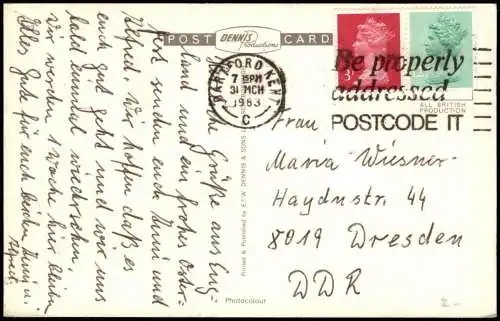 POST
DENNIS
Productions
CARD
DARTFORD KENT
7 15PM
31 MCH
1983
C
Be properly
addressed
POSTCODE IT
ALL BRITISH
PRODUCTION
Printed & Published by E.T.W. DENNIS & SONS
Photocolour
Grüße aus Eng-
land und ein frohes Oster-
fest senden euch Muni und
Alfred. Wir hoffen daß es
euch gut geht und wir uns
bald einmal wiedersehen.
Wir werden 1 Woche hier bleiben
Alles Gute für euch beiden Muni u.
Alfred.
Frau
Maria Wiesner
Haydnstr. 44
8019 Dresden
DDR
2.-